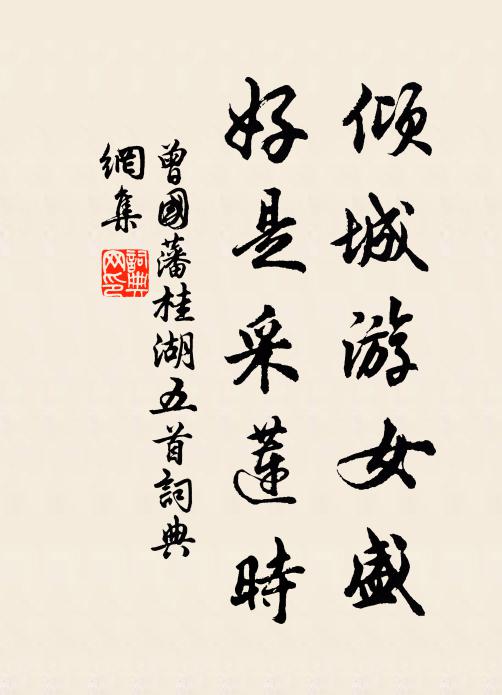 倾城游女盛
好是采蓮時
曾國藩桂湖五首詞典
網集
詞典
网印